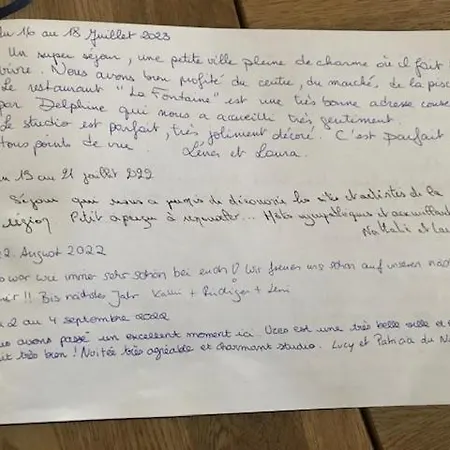 du 16 au 18 Juillet 2023
Un super séjour, une petite ville pleine de charme où il fait
vivre. Nous avons bien profité du centre, du marché, de la pisc
Le restaurant "La Fontaine" est une très bonne adresse conse
par Delphine qui nous a accueilli très gentiment.
Le studio est parfait, très joliment décoré. C'est parfait
tous points de vue. Léna et Laura.
du 19 au 21 juillet 2022
Séjour qui nous a permis de découvrir les sites et artistes de la
région Petit aperçu à renouveler... Hôtes sympathiques et accueillant
Nathalie et
2. August 2022
es war wie immer sehr schön bei euch! Wir freuen uns schon auf unseren näch
!! Bis nächstes Jahr + Rüdiger + Leni
2 au 4 septembre 2022
us avons passé un excellent moment ici. Uzès est une très belle ville et
ut très bien! Nuitée très agréable et charmant studio. Lucy et Patricia du